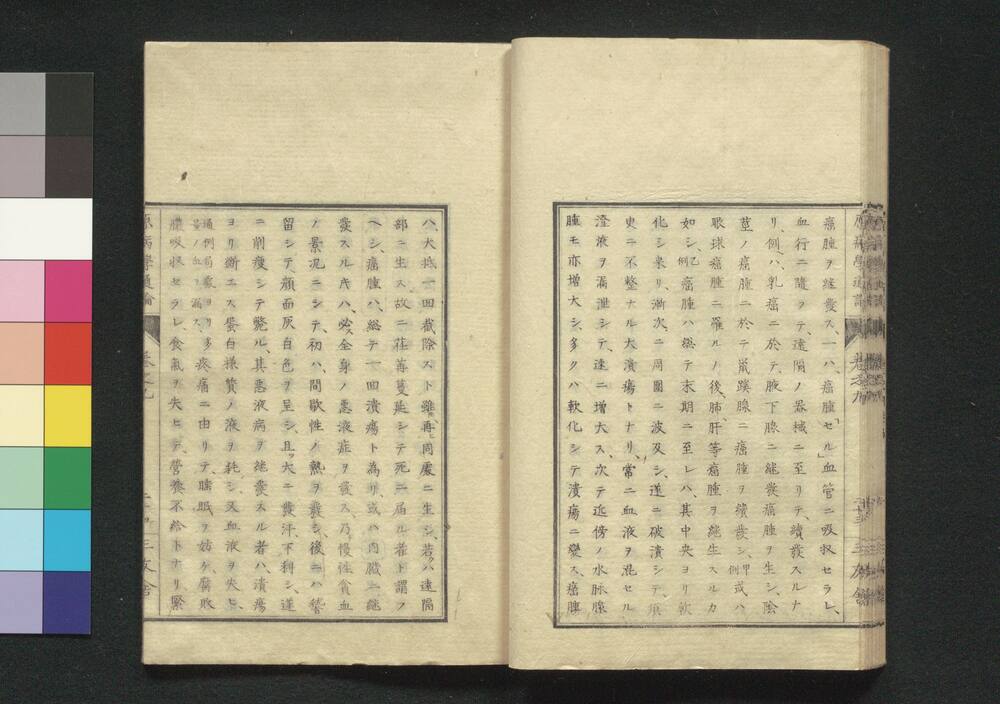 癌腫ヲ継発ス、一ハ、癌腫「セル」血管ニ吸收セラレ、
血行ニ隨フテ、遠隔ノ器械ニ至リテ、續發スルナ
リ、例ヘハ、乳癌ニ於テ、腋下腺ニ継発癌腫ヲ生シ、陰
莖ノ癌腫ニ於テ、鼠蹊腺ニ癌腫ヲ續發シ、甲例或ハ
眼球癌腫ニ罹ルノ後、肺、肝等癌腫ヲ継生スルカ
如シ、乙例癌腫ハ、總テ末期ニ至レハ、其中央ヨリ軟
化シ来リ、漸次ニ周圍ニ波及シ、遂ニ破潰シテ、
更ニ不整ナル大潰瘍トナリ、常ニ血液ヲ混セル
澄液ヲ漏泄シテ、速ニ增大ス、次テ近傍ノ水脉腺
腫モ亦增大シ、多クハ軟化シテ潰瘍ニ變ス、癌腫
原病學通論 巻之九 二十三 三友舎
ハ、大抵一回截除スト雖、再同處ニ生シ、若クハ遠隔
部ニ生ス、故ニ荏苒蔓延シテ死ニ届ル者ト謂フ
ヘシ、癌腫ハ、総テ一回潰瘍ト為リ、或ハ内臓ニ継
発スル片ハ、必ス全身ノ悪液症ヲ發ス、乃慢性貧血
ノ景况ニシテ、初ハ、間歇性ノ熱ヲ發シ、後ニハ稽
留シテ、顔面灰白色ヲ呈シ、且大ニ發汗、下利シ、遂
ニ削瘦シテ斃ル、其悪液病ヲ継発スル者ハ、潰瘍
ヨリ斷エス蛋白様質ノ液ヲ耗シ、又血液ヲ失ヒ、
通例局處ヨリ多量ノ血ヲ漏ス、疼痛ニ由リテ、睡眠ヲ妨ケ、腐敗
膿吸收セラレ、食氣ヲ失ヒテ、營養不給トナリ、緊
原病學通論 巻之九 二十四 三友舎